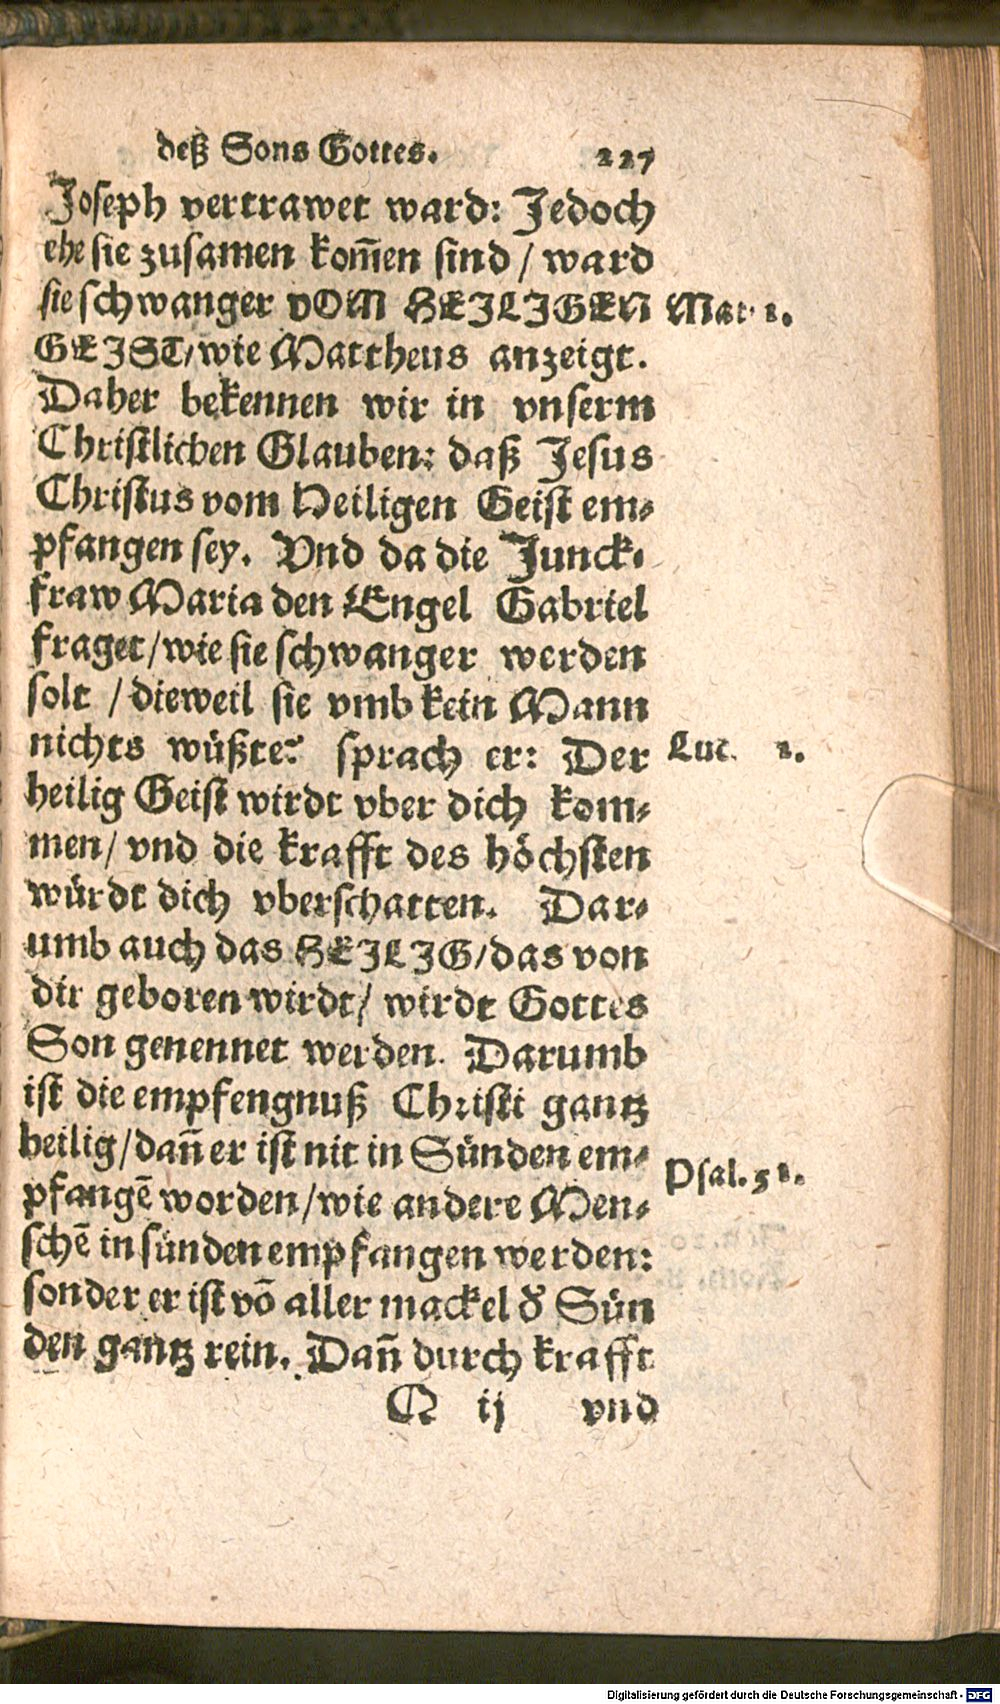 deß Sons Gottes. 227
Joseph vertrawet ward: Jedoch
ehe sie zusamen kom̄en sind / ward
sie schwanger vOM HEILIGEN Mat. 1.
GEIST/ wie Mattheus anzeigt.
Daher bekennen wir in vnserm
Christlichen Glauben: daß Jesus
Christus vom Heiligen Geist em⸗
pfangen sey. Vnd da die Junck⸗
fraw Maria den Engel Gabriel
fraget/ wie sie schwanger werden
solt / dieweil sie vmb kein Mann
nichts wüßte? sprach er: Der Luc. 1.
heilig Geist wirdt vber dich kom⸗
men/ vnd die krafft des höchsten
würdt dich vberschatten. Dar⸗
umb auch das HEILIG/ das von
dir geboren wirdt/ wirdt Gottes
Son genennet werden. Darumb
ist die empfengnuß Christi gantz
heilig/ dan̄ er ist nit in Sünden em⸗
pfangē worden/ wie andere Men⸗ Psal. 51.
schē in sünden empfangen werden:
sonder er ist võ aller mackel d̕ Sün
den gantz rein. Dan̄ durch krafft
Q ij vnd
Digitalisierung gefördert durch die Deutsche Forschungsgemeinschaft - DFG